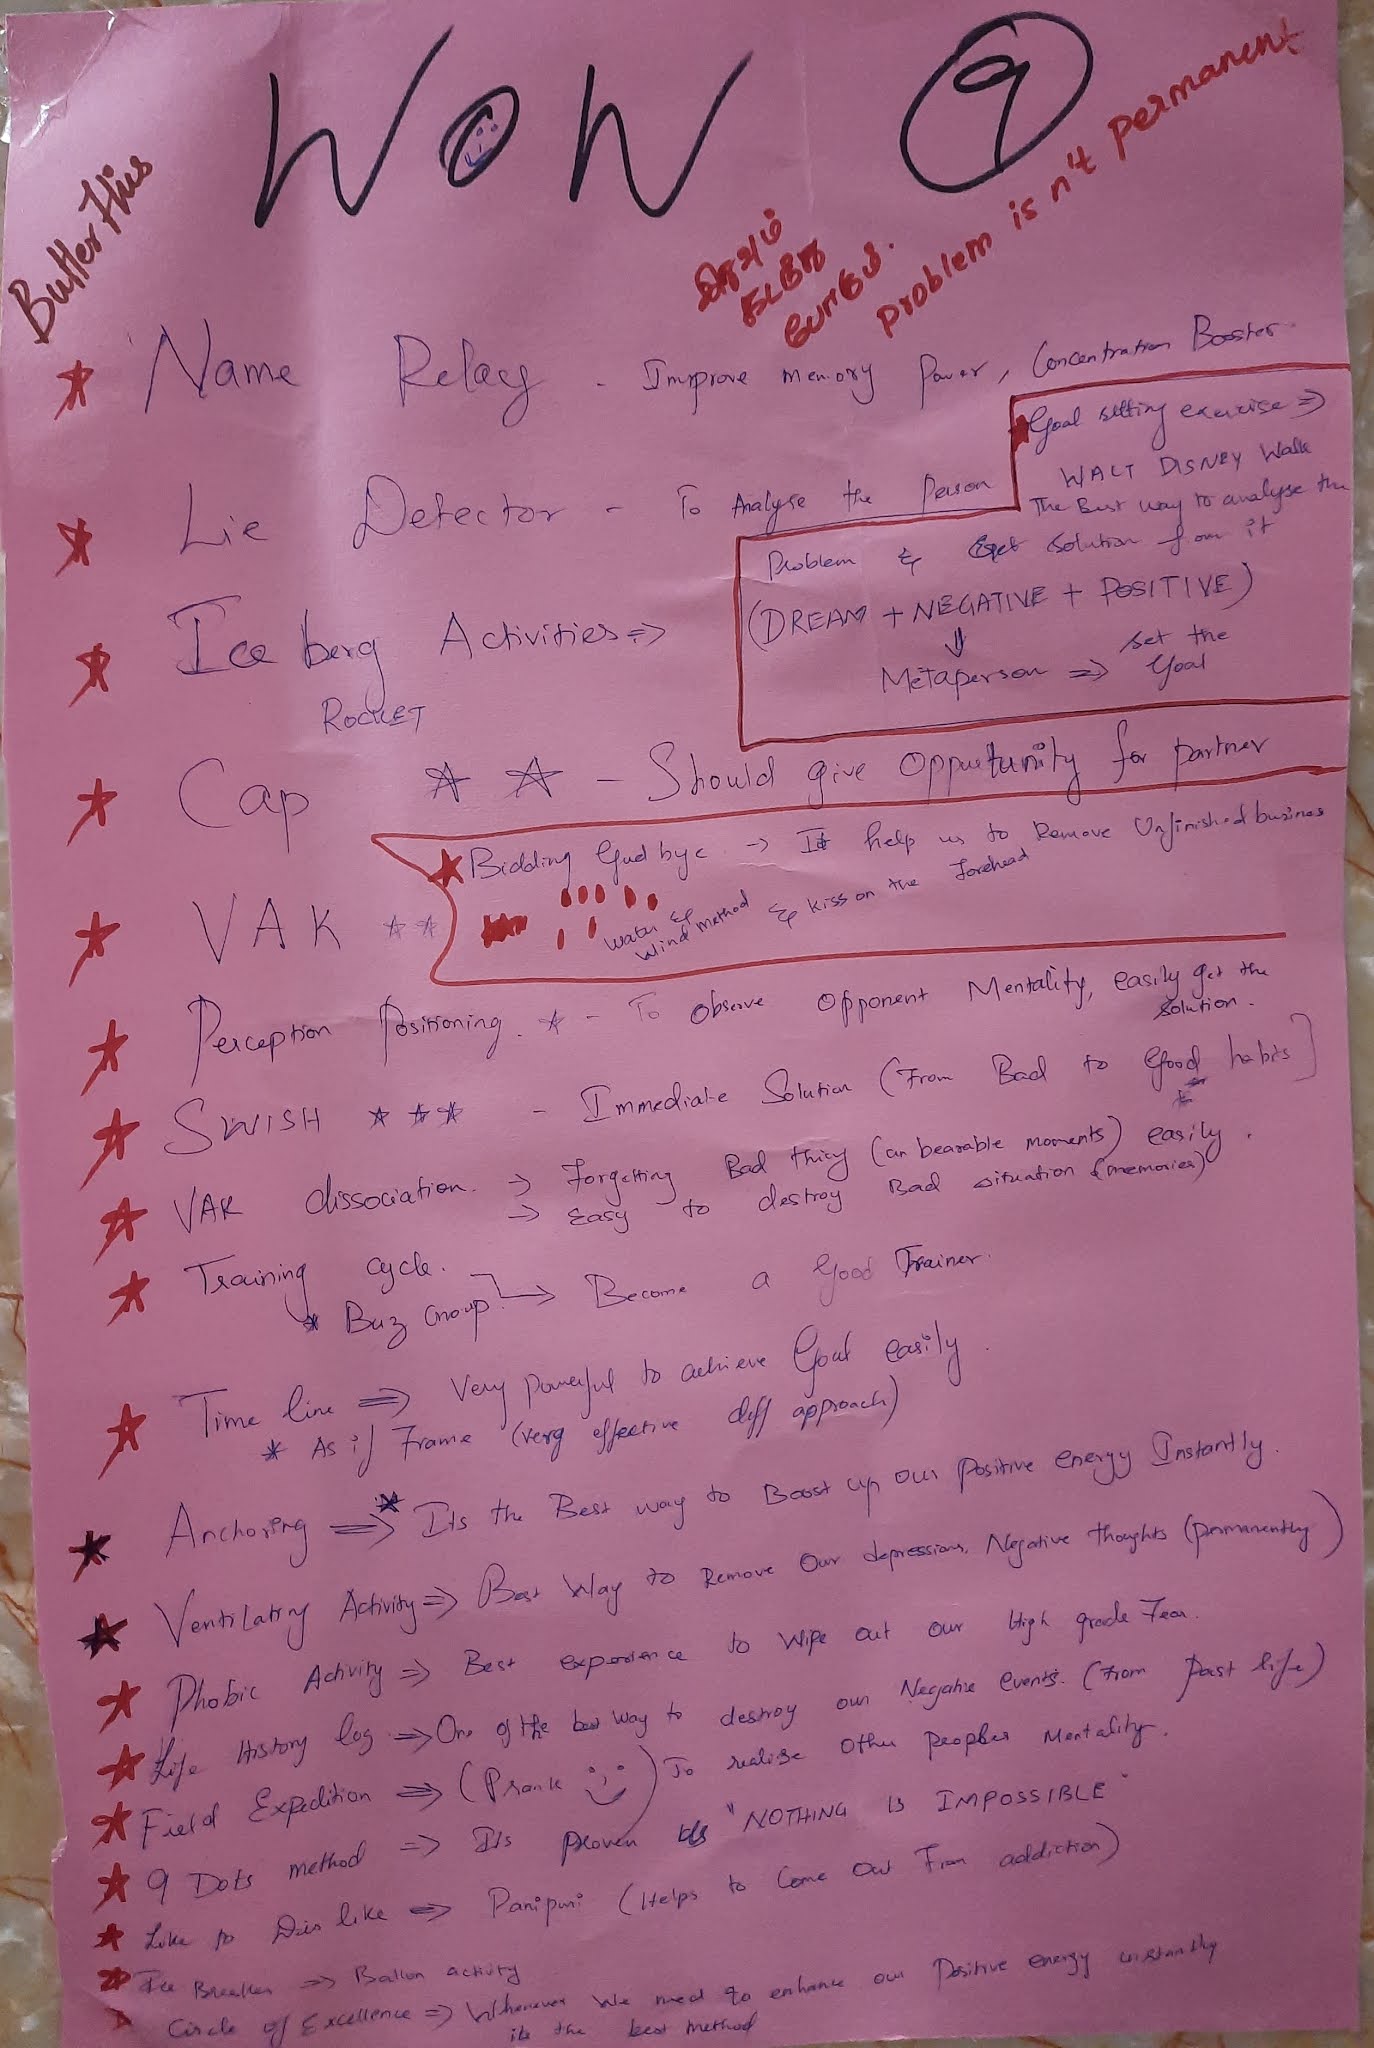 WOW 9
Butter Flies
இதுவும்
கடந்து
போகும்.
problem is n't permanent
Name Relay - Improve memory Power, Concentration Booster
Lie Detector - To Analyse the Person
Goal setting exercise ⇒
WALT DISNEY Walk
The Best way to analyse the
Problem & Get solution from it
(DREAM + NEGATIVE + POSITIVE)
⇓
Metaperson ⇒ set the
Goal
Ice berg Activities ⇒
ROCKET
Cap - Should give Oppurtunity for partner
Bidding Gud bye → It help us to Remove Unfinished business
water &
wind method & kiss on the Forehead
VAK
Perception Positioning. - To Observe Opponent Mentality, easily get the
solution.
SWISH - Immediate Solution (From Bad to Good habits]
VAK dissociation. → Forgetting Bad thing (un bearable moments) easily.
→ Easy to destroy Bad situation (memories)
Training cycle.
* Buz Group. → Become a Good Trainer.
Time line ⇒ Very Powerful to achieve Goal easily.
* As if Frame (very effective diff approach)
Anchoring ⇒ * Its the Best way to Boost up our Positive energy Instantly.
Ventilating Activity ⇒ Best Way to Remove Our depression, Negative thoughts (permanently)
Phobic Activity ⇒ Best experience to Wipe out our High grade Fear.
Life History log ⇒ One of the best way to destroy our Negative events. (From Past life)
Field Expedition ⇒ (Prank) To realise Other Peoples Mentality.
9 Dots method ⇒ Its proven us "NOTHING IS IMPOSSIBLE"
Like to Dis like ⇒ Panipuri (Helps to Come Out From addiction)
Ice Breaker ⇒ Ballon activity
Circle of Excellence ⇒ Whenever We need to enhance our Positive energy instantly
its the best method